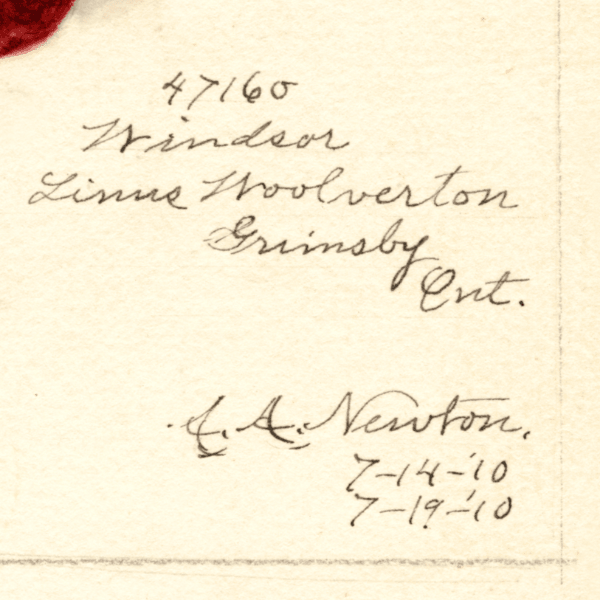 47160
Windsor
Linus Woolverton
Grimsby
Ont.
A. A. Newton.
7-14-'10
7-19-'10